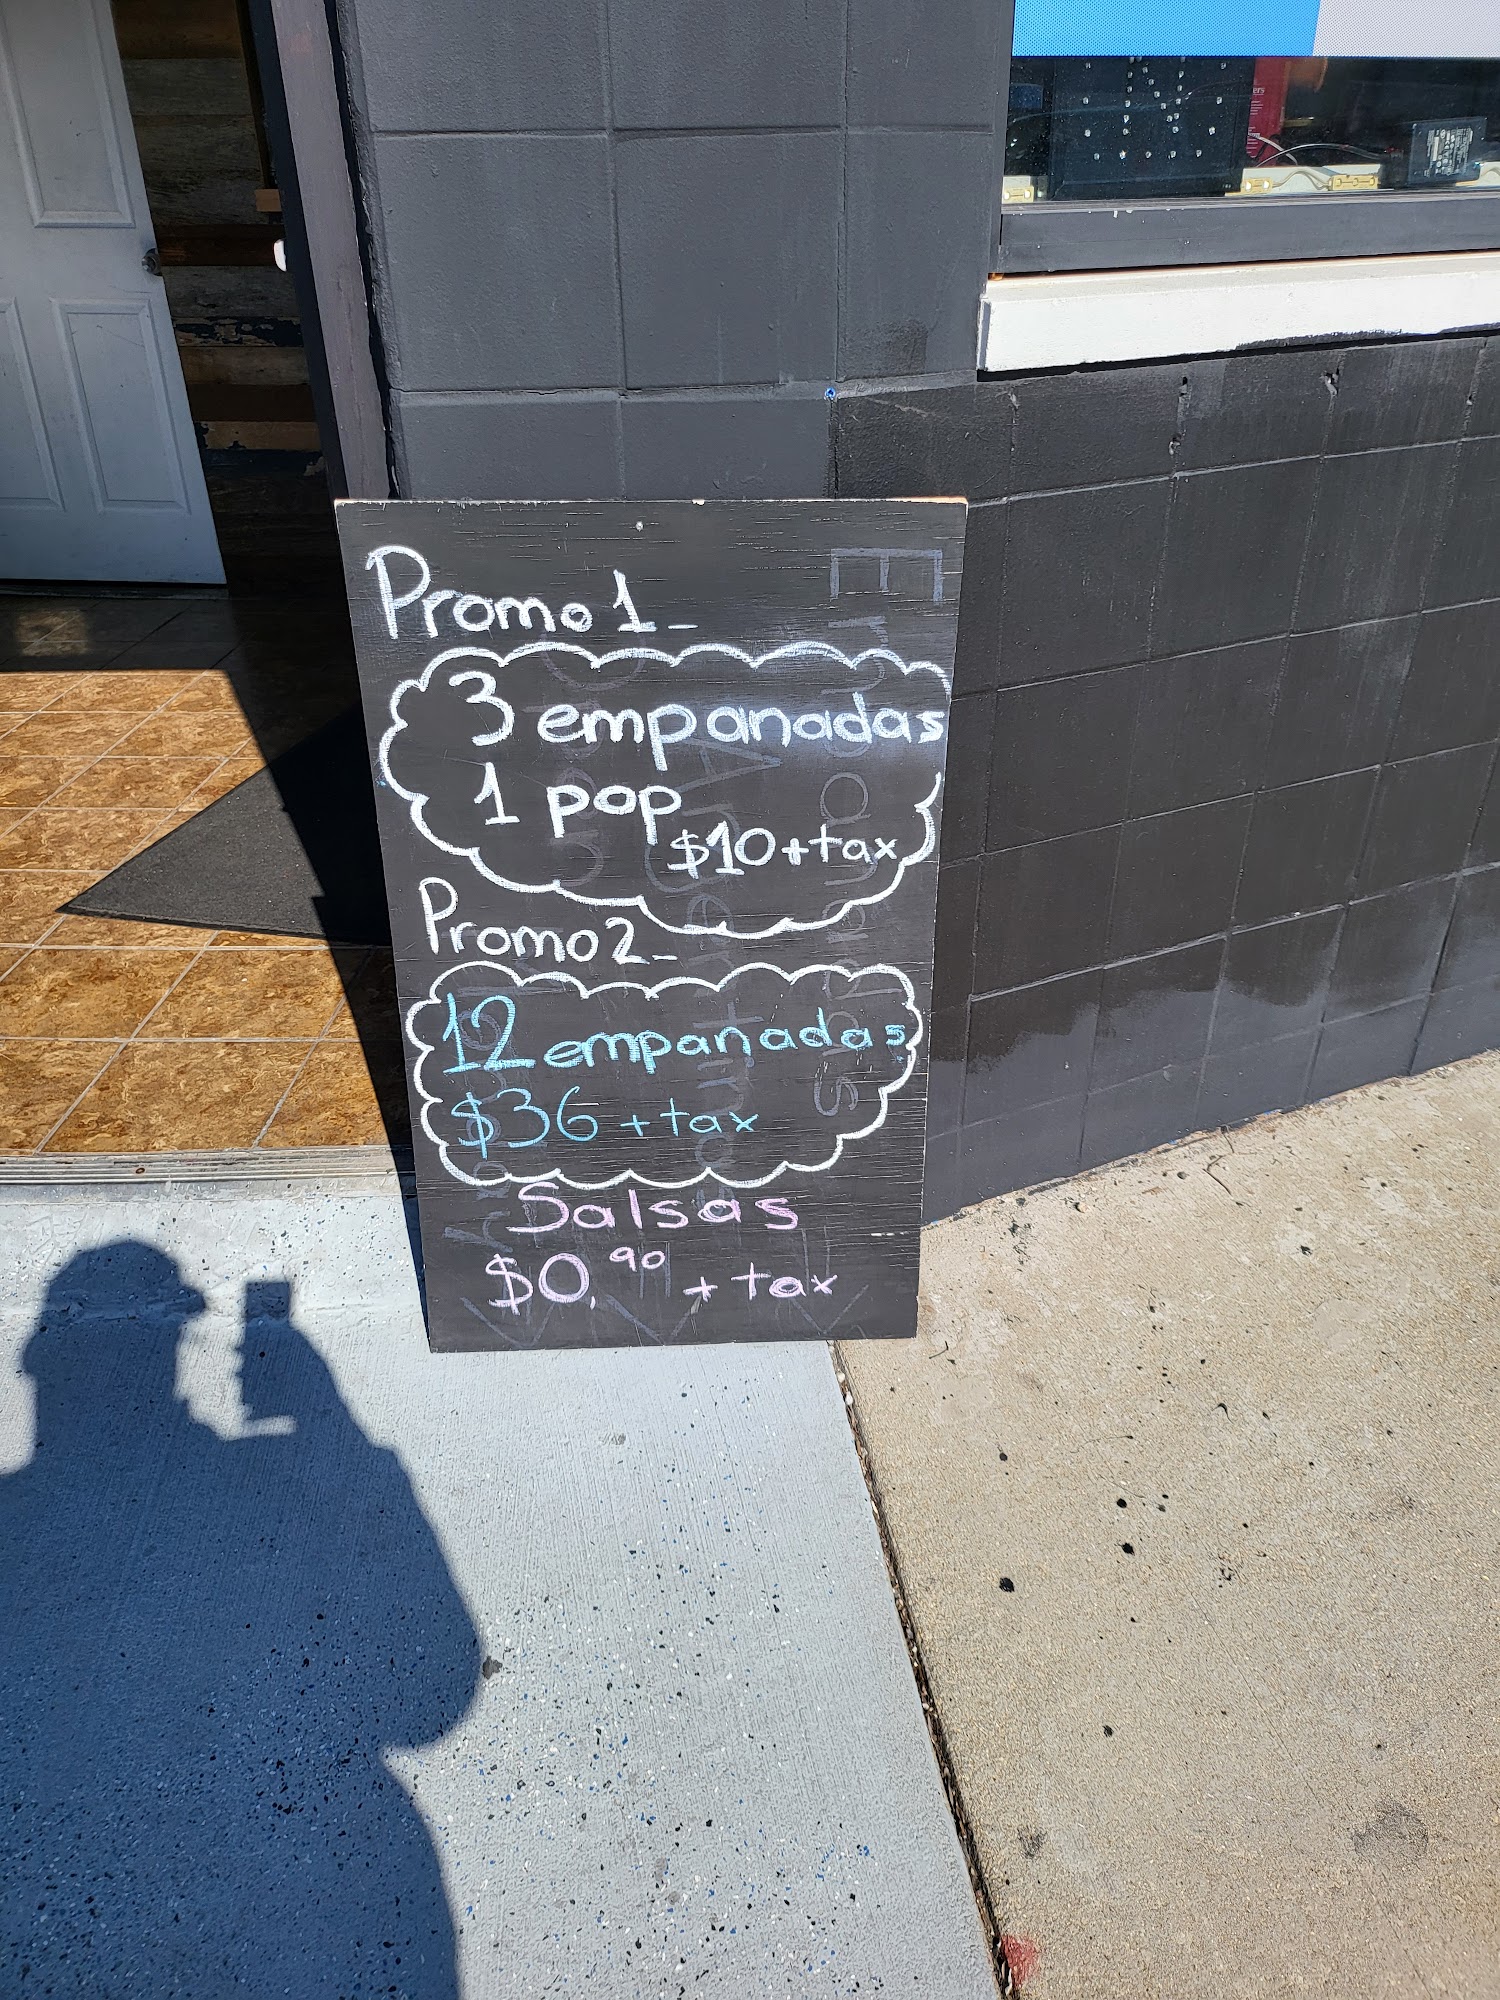 Promo 1_
3 empanadas
1 pop
$10+tax
Promo 2_
12 empanadas
$36 + tax
Salsas
$0,90 + tax